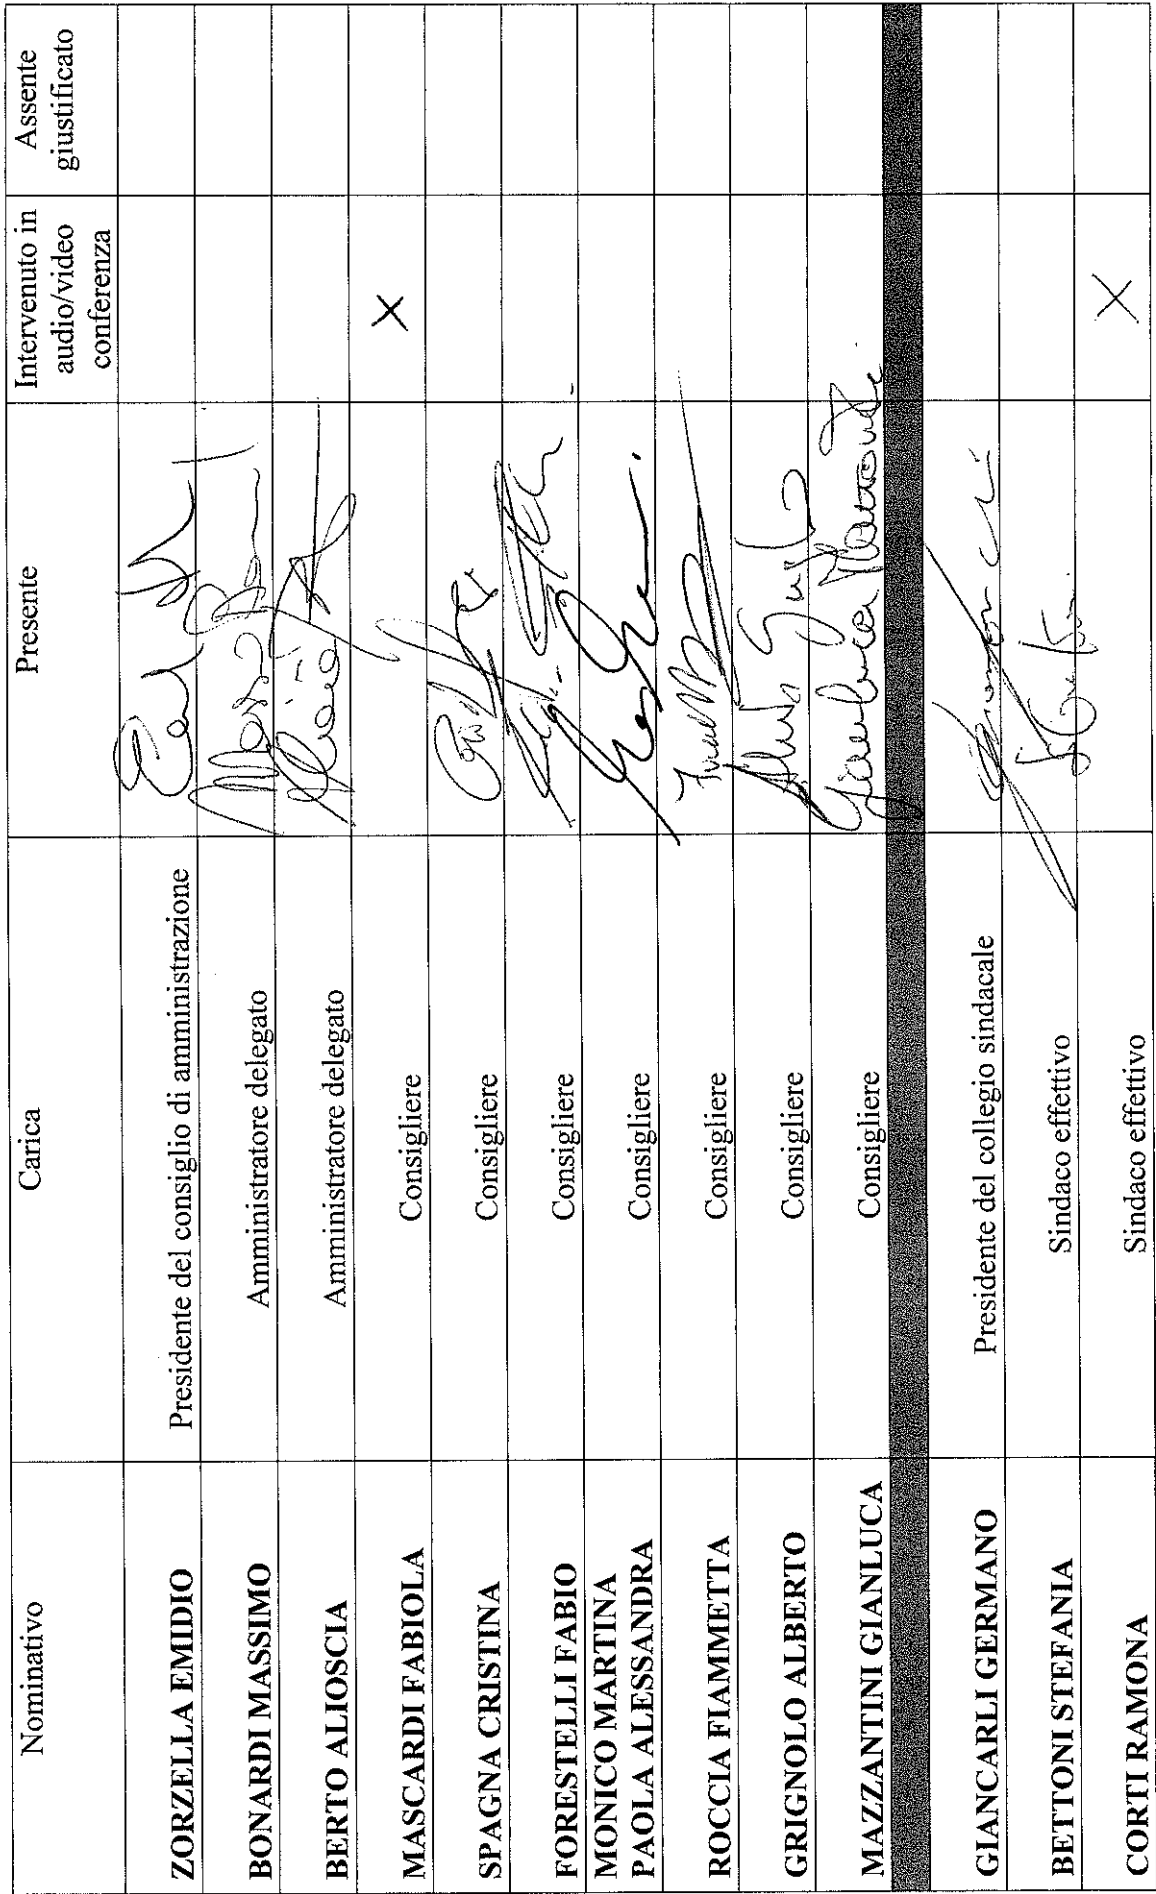 Nominativo Carica Presente Intervenuto in audio/video conferenza Assente giustificato
ZORZELLA EMIDIO Presidente del consiglio di amministrazione
BONARDI MASSIMO Amministratore delegato
BERTO ALIOSCIA Amministratore delegato
MASCARDI FABIOLA Consigliere X
SPAGNA CRISTINA Consigliere
FORESTELLI FABIO Consigliere
MONICO MARTINA
PAOLA ALESSANDRA Consigliere
ROCCIA FIAMMETTA Consigliere
GRIGNOLO ALBERTO Consigliere
MAZZANTINI GIANLUCA Consigliere Gianluca Mazzantini
GIANCARLI GERMANO Presidente del collegio sindacale
BETTONI STEFANIA Sindaco effettivo
CORTI RAMONA Sindaco effettivo X